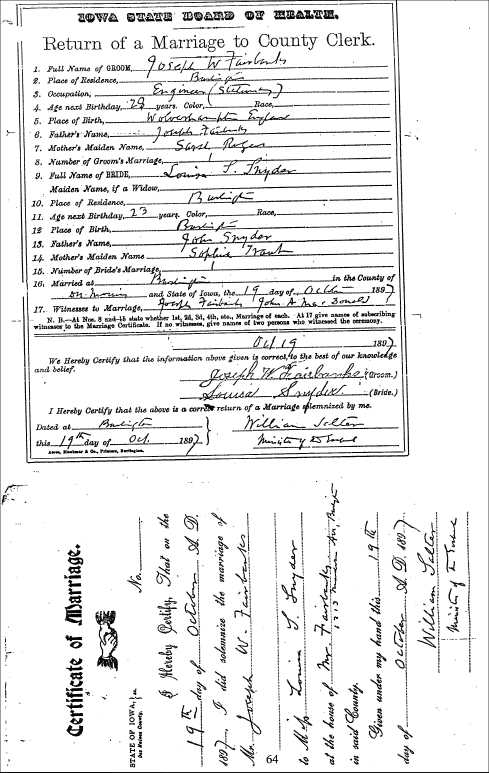 IOWA STATE BOARD OF HEALTH.
Return of a Marriage to County Clerk.
1. Full Name of GROOM, Joseph W Fairbanks
2. Place of Residence, Burlington
3. Occupation, Engineer (Stationary)
4. Age next Birthday, 28 years. Color, Race,
5. Place of Birth, Wolverhampton England
6. Father's Name, Joseph Fairbanks
7. Mother's Maiden Name, Sarah Rogers
8. Number of Groom's Marriage, 1
9. Full Name of BRIDE, Louisa S. Snyder
Maiden Name, if a Widow,
10. Place of Residence, Burlington
11. Age next Birthday, 23 years. Color, Race,
12 Place of Birth, Burlington
13. Father's Name, John Snyder
14. Mother's Maiden Name Sophia
15. Number of Bride's Marriage, 1
16. Married at Burlington in the County of
Des Moines and State of Iowa, the 19 day of October 1897
17. Witnesses to Marriage, Joseph Fairbanks John A MacDonald
N. B.—At Nos. 8 and 15 state whether 1st, 2d, 3d, 4th, etc., Marriage of each. At 17 give names of subscribing
witnesses to the Marriage Certificate. If no witnesses, give names of two persons who witnessed the ceremony.
Oct 19 1897
We Hereby Certify that the information above given is correct, to the best of our knowledge
and belief.
Joseph W. Fairbanks (Groom.)
Louisa Snyder. (Bride.)
I Hereby Certify that the above is a correct return of a Marriage solemnized by me.
Dated at Burlington William Salter
this 19th day of Oct. 1897 Minister of the Gospel
Acres, Blackmar & Co., Printers, Burlington.
Certificate of Marriage.
STATE OF IOWA, ss.
Des Moines County.
No.
I Hereby Certify, That on the
19th day of October A. D.
1897, I did solemnize the marriage of
Mr. Joseph W. Fairbanks
to Miss Louisa S. Snyder
at the house of Mr Fairbanks
in said County.
Given under my hand this 19th
day of October A. D. 1897
William Salter
Minister of the Gospel
64